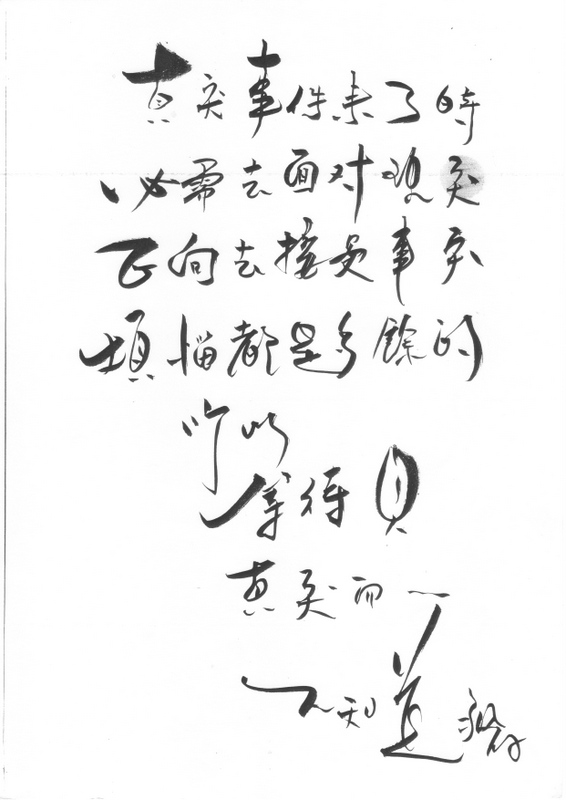 真实事件来了時
必需去面对现实
正向去接受事实
煩惱都是多餘的
所以
等待
真实而
不知道